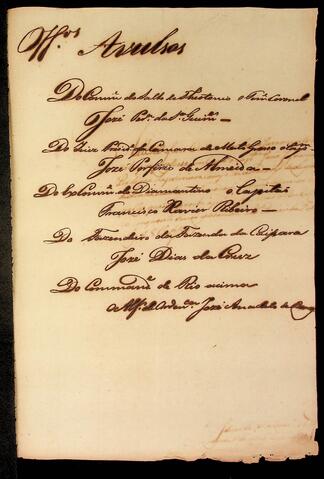 Mços Avulsos
Do Comm.e do Salto de Theotonio o Ten.e Coronel
José
Do Juiz Presid.e da Camara de Mato Grosso o Cap.m
José Porfirio de Almeida
Do Ex Comm.e do Diamantino o Capitão
Francisco Xavier Ribeiro
Do Fazendeiro da Fazenda da Caiçara
José Dias da Cruz
Do Command.e de Rio acima
José